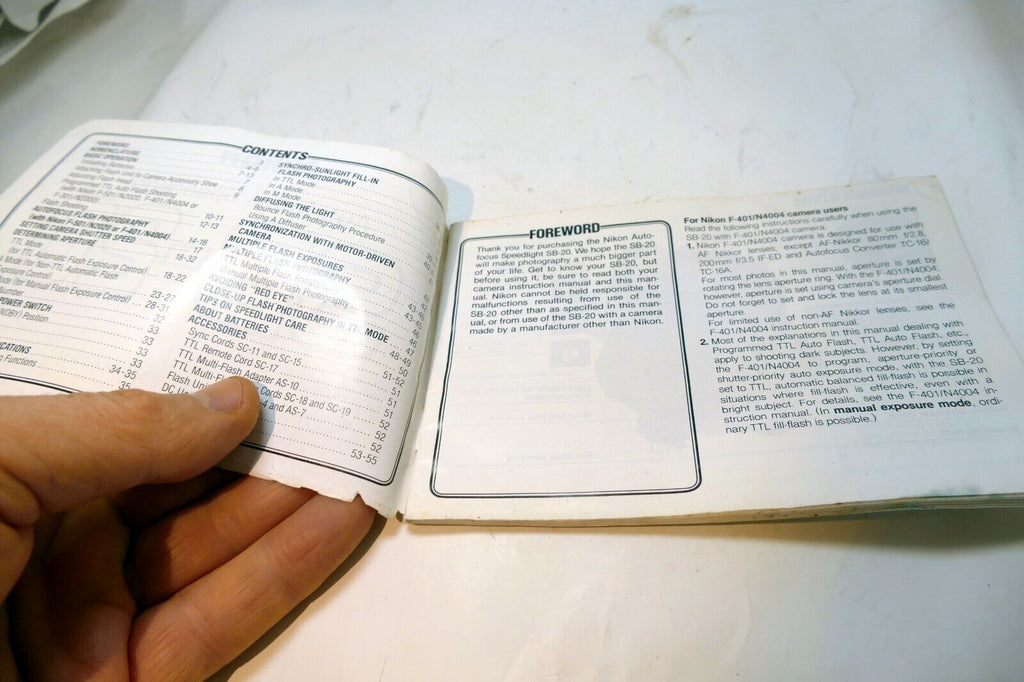 CONTENTS
FOREWORD
NOMENCLATURE
BASIC OPERATION
Installing Batteries
Attaching Flash Unit to Camera Accessory Shoe
Programmed TTL Auto Flash Shooting
(with Nikon F-501/N2020, F-401/N4004 or
Flash Shooting 10-11
AUTOFOCUS FLASH PHOTOGRAPHY 12-13
(with Nikon F-501/N2020 or F-401/N4004)
SETTING CAMERA SHUTTER SPEED 14-16
DETERMINING APERTURE 17
TTL Mode 18-32
(for TTL Automatic Flash Exposure Control)
Mode (for Non-TTL Automatic Flash 18-22
Exposure Control)
Mode (for Manual Flash Exposure Control) 23-27
28-31
POWER SWITCH 32
(STANDBY) Position 33
33
33
33
34-35
35
SYNCHRO-SUNLIGHT FILL-IN
FLASH PHOTOGRAPHY
In TTL Mode
In A Mode
In M Mode
DIFFUSING THE LIGHT
Bounce Flash Photography Procedure
Using A Diffuser
SYNCHRONIZATION WITH MOTOR-DRIVEN
CAMERA
MULTIPLE FLASH EXPOSURES
MULTIPLE FLASH PHOTOGRAPHY
TTL Multiple Flash Photography
Manual Multiple Flash Photography
AVOIDING "RED EYE"
CLOSE-UP FLASH PHOTOGRAPHY IN TTL MODE
TIPS ON SPEEDLIGHT CARE 48-49
ABOUT BATTERIES 50
ACCESSORIES 51-52
Sync Cords SC-11 and SC-15 51
TTL Remote Cord SC-17 51
TTL Multi-Flash Adapter AS-10 52
TTL Multi-Flash Cords SC-18 and SC-19 52
Flash Unit and AS-7 52
52
53-55
FOREWORD
Thank you for purchasing the Nikon Auto-
focus Speedlight SB-20. We hope the SB-20
will make photography a much bigger part
of your life. Get to know your SB-20, but
before using it, be sure to read both your
camera instruction manual and this man-
ual. Nikon cannot be held responsible for
malfunctions resulting from use of the
SB-20 other than as specified in this man-
ual, or from use of the SB-20 with a camera
made by a manufacturer other than Nikon.
For Nikon F-401/N4004 camera users
Read the following instructions carefully when using the
SB-20 with F-401/N4004 camera.
1. Nikon F-401/N4004 camera is designed for use with
AF Nikkor lenses, except AF-Nikkor 80mm f/2.8,
200mm f/3.5 IF-ED and Autofocus Converter TC-16/
TC-16A.
For most photos in this manual, aperture is set by
rotating the lens aperture ring. With the F-401/N4004,
however, aperture is set using camera's aperture dial.
Do not forget to set and lock the lens at its smallest
aperture.
For limited use of non-AF Nikkor lenses, see the
F-401/N4004 instruction manual.
2. Most of the explanations in this manual dealing with
Programmed TTL Auto Flash, TTL Auto Flash, etc.,
apply to shooting dark subjects. However, by setting
the F-401/N4004 to program, aperture-priority or
shutter-priority auto exposure mode, with the SB-20
set to TTL, automatic balanced fill-flash is possible in
situations where fill-flash is effective, even with a
bright subject. For details, see the F-401/N4004 in-
struction manual. (In manual exposure mode, ordi-
nary TTL fill-flash is possible.)